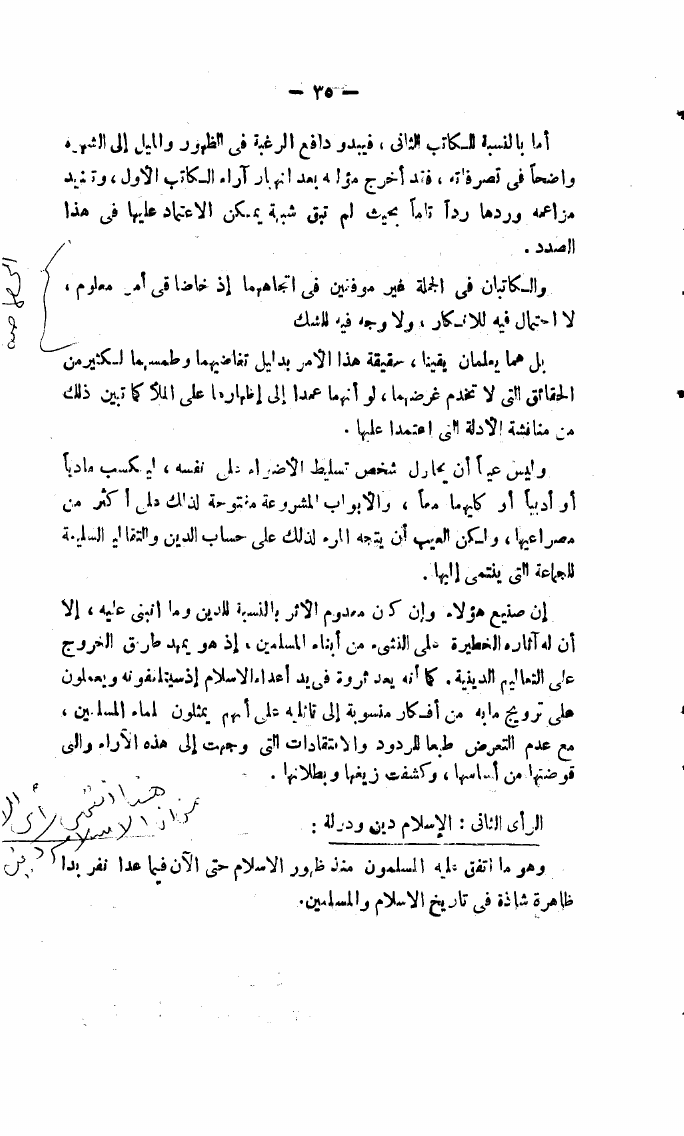 — ٣٥ —
أما بالنسبة للكاتب الثانى ، فيبدو دافع الرغبة فى الظهور والميل إلى الشهره
واضحاً فى تصرفاته ، فقد أخرج مؤلفه بعد انهيار آراء الكاتب الأول ، وتفنيد
مزاعمه وردها رداً تاماً بحيث لم تبق شبهة يمكن الاعتماد عليها فى هذا
الصدد .
والكاتبان فى الجملة غير موفقين فى اتجاههما إذ خاضا فى أمر معلوم ،
لا احتمال فيه للانكار ، ولا وجه فيه للشك
بل هما يعلمان يقينا ، حقيقة هذا الأمر بدليل تغاضيهما وطمسهما لكثير من
الحقائق التى لا تخدم غرضهما ، لو أنهما عمدا إلى إظهارها على الملأ كما تبين ذلك
من مناقشة الأدلة التى اعتمدا عليها .
وليس عيباً أن يحاول شخص تسليط الأضواء على نفسه ، ليكسب مادياً
أو أدبياً أو كليهما معاً ، والأبواب المشروعة مفتوحة لذلك على أكثر من
مصراعيها ، ولكن العيب أن يتجه المرء لذلك على حساب الدين والتقاليد السليمة
للجماعة التى ينتمى إليها .
إن صنيع هؤلاء وإن كان معدوم الأثر بالنسبة للدين وما انبنى عليه ، إلا
أن له آثاره الخطيرة على النشىء من أبناء المسلمين ، إذ هو يمهد طريق الخروج
على التعاليم الدينية . كما أنه يعد ثروة فى يد أعداء الاسلام إذ سيتلقفونه ويعملون
على ترويج مابه من أفكار منسوبة إلى قائليه على أنهم يمثلون علماء المسلمين ،
مع عدم التعرض طبعا للردود والانتقادات التى وجهت إلى هذه الآراء والتى
قوضتها من أساسها ، وكشفت زيفها وبطلانها .
الرأى الثانى : الإسلام دين ودولة :
وهو ما اتفق عليه المسلمون منذ ظهور الاسلام حتى الآن فيما عدا نفر بدا
ظاهرة شاذة فى تاريخ الاسلام والمسلمين.
هذا انتهى رأى
الاسلام دين